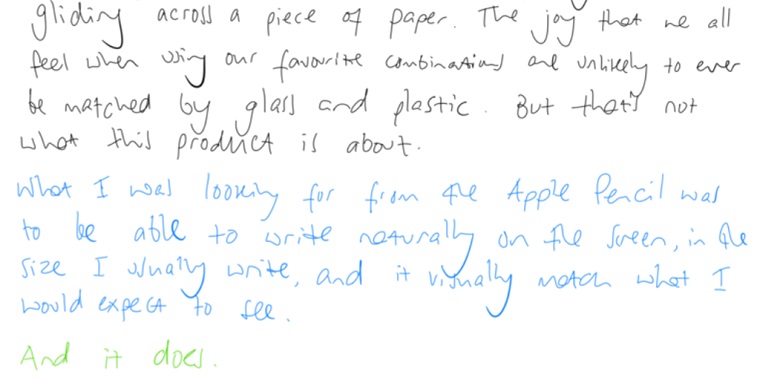 gliding across a piece of paper. The joy that we all
feel when using our favourite combinations are unlikely to ever
be matched by glass and plastic. But that's not
what this product is about.
What I was looking for from the Apple Pencil was
to be able to write naturally on the screen, in the
size I usually write, and it visually match what I
would expect to see.
And it does.